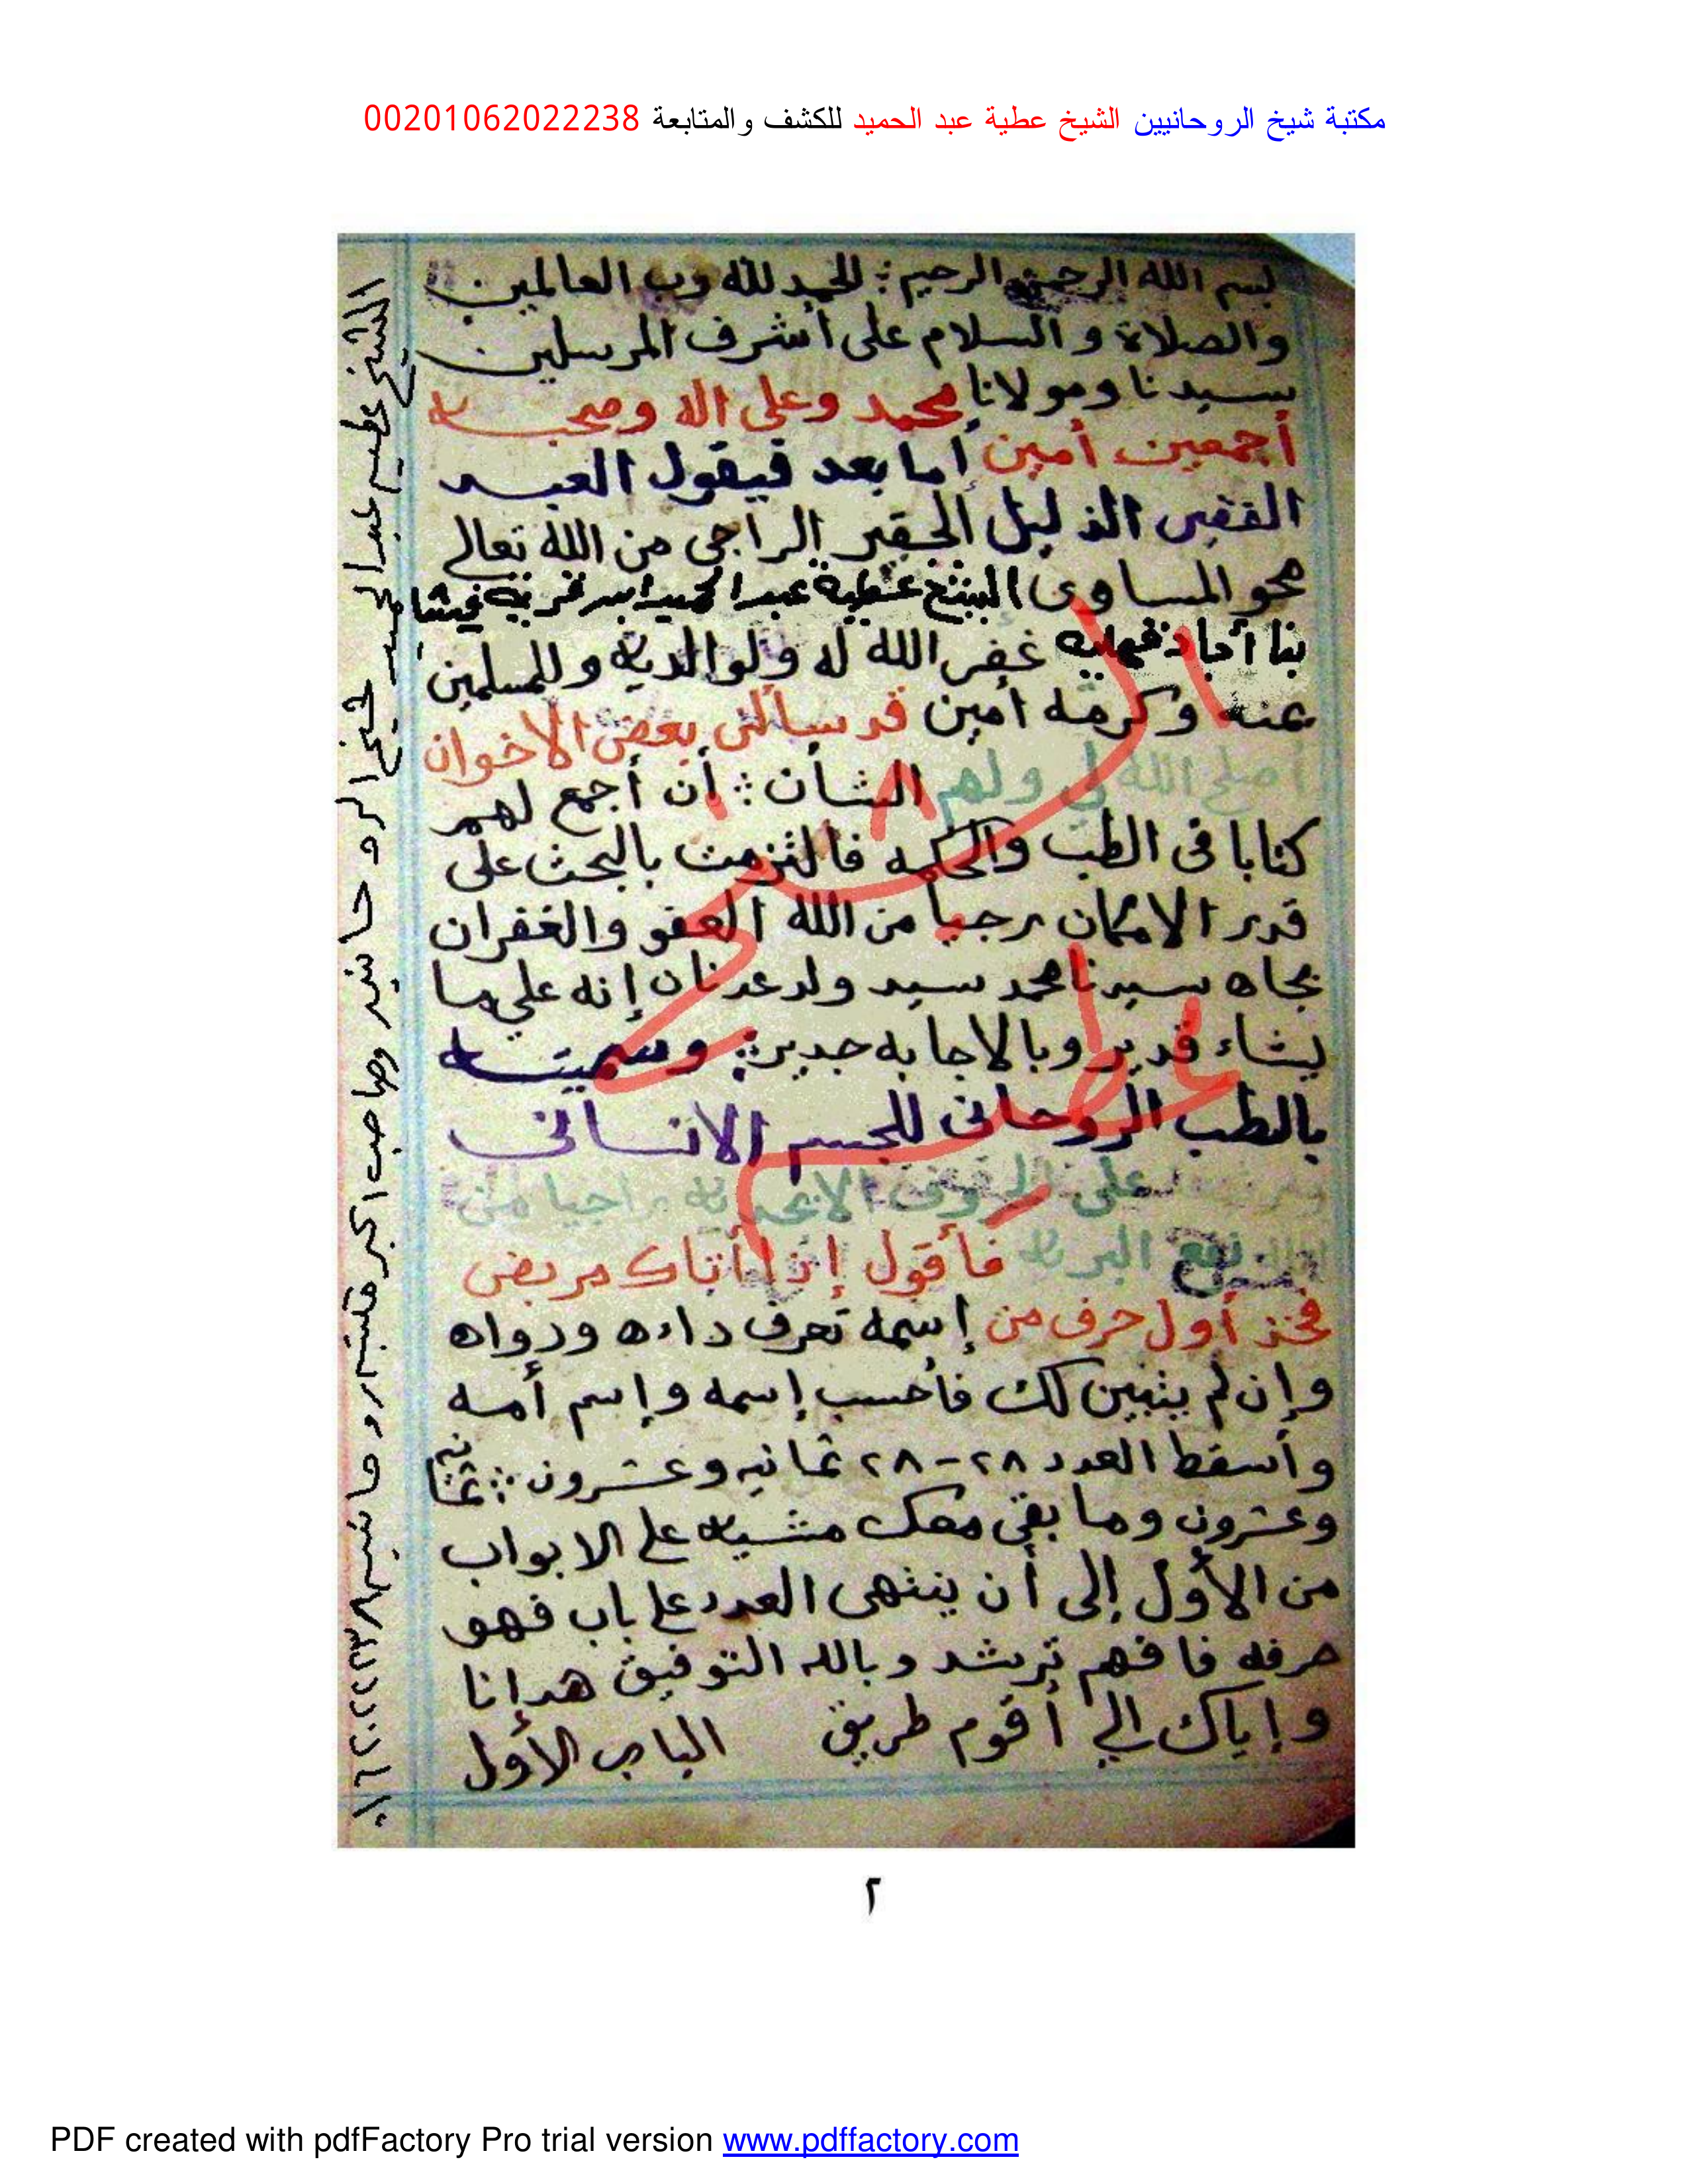 مكتبة شيخ الروحانيين الشيخ عطية عبد الحميد للكشف والمتابعة 00201062022238
بسم الله الرحمن الرحيم : الحمد لله رب العالمين
والصلاة و السلام على أشرف المرسلين
سيدنا ومولانا محمد وعلى اله وصحبه
أجمعين أمين أما بعد فيقول العبد
الفقير الذليل الحقير الراجى من الله تعالى
محو المساوى الشيخ عطية عبد الحميد
غفر الله له ولوالديه وللمسلمين
عنه وكرمه أمين قد سألنى بعض الاخوان
أصلح الله لي ولهم الشأن : أن أجمع لهم
كتابا فى الطب والحكمه فالتزمت بالبحث على
قدر الامكان رجيا من الله العفو والغفران
بجاه سيدنا محمد سيد ولد عدنان إنه على ما
يشاء قدير وبالاجابه جدير : وسميته
بالطب الروحانى للجسم الانسانى
على الحروف الابجديه راجيا من
نفع البريه فأقول إذا أتاك مريض
فخذ أول حرف من إسمه تعرف داءه ودواه
وإن لم يتبين لك فأحسب إسمه وإسم أمه
وأسقط العدد ٢٨-٢٨ ثمانيه وعشرون : ثمانيه
وعشرون وما بقى معك مشيه على الابواب
من الأول إلى أن ينتهى العدد على باب فهو
حرفه فافهم ترشد وبالله التوفيق هدانا
وإياك الي أقوم طريق الباب الأول
الشيخ عطيه عبد الحميد شيخ الروحانيين وصاحب اكبر مكتبه روحانيه ٠١٠٦٢٠٢٢٢٣٨
الشيخ
عطيه
٢
PDF created with pdfFactory Pro trial version www.pdffactory.com